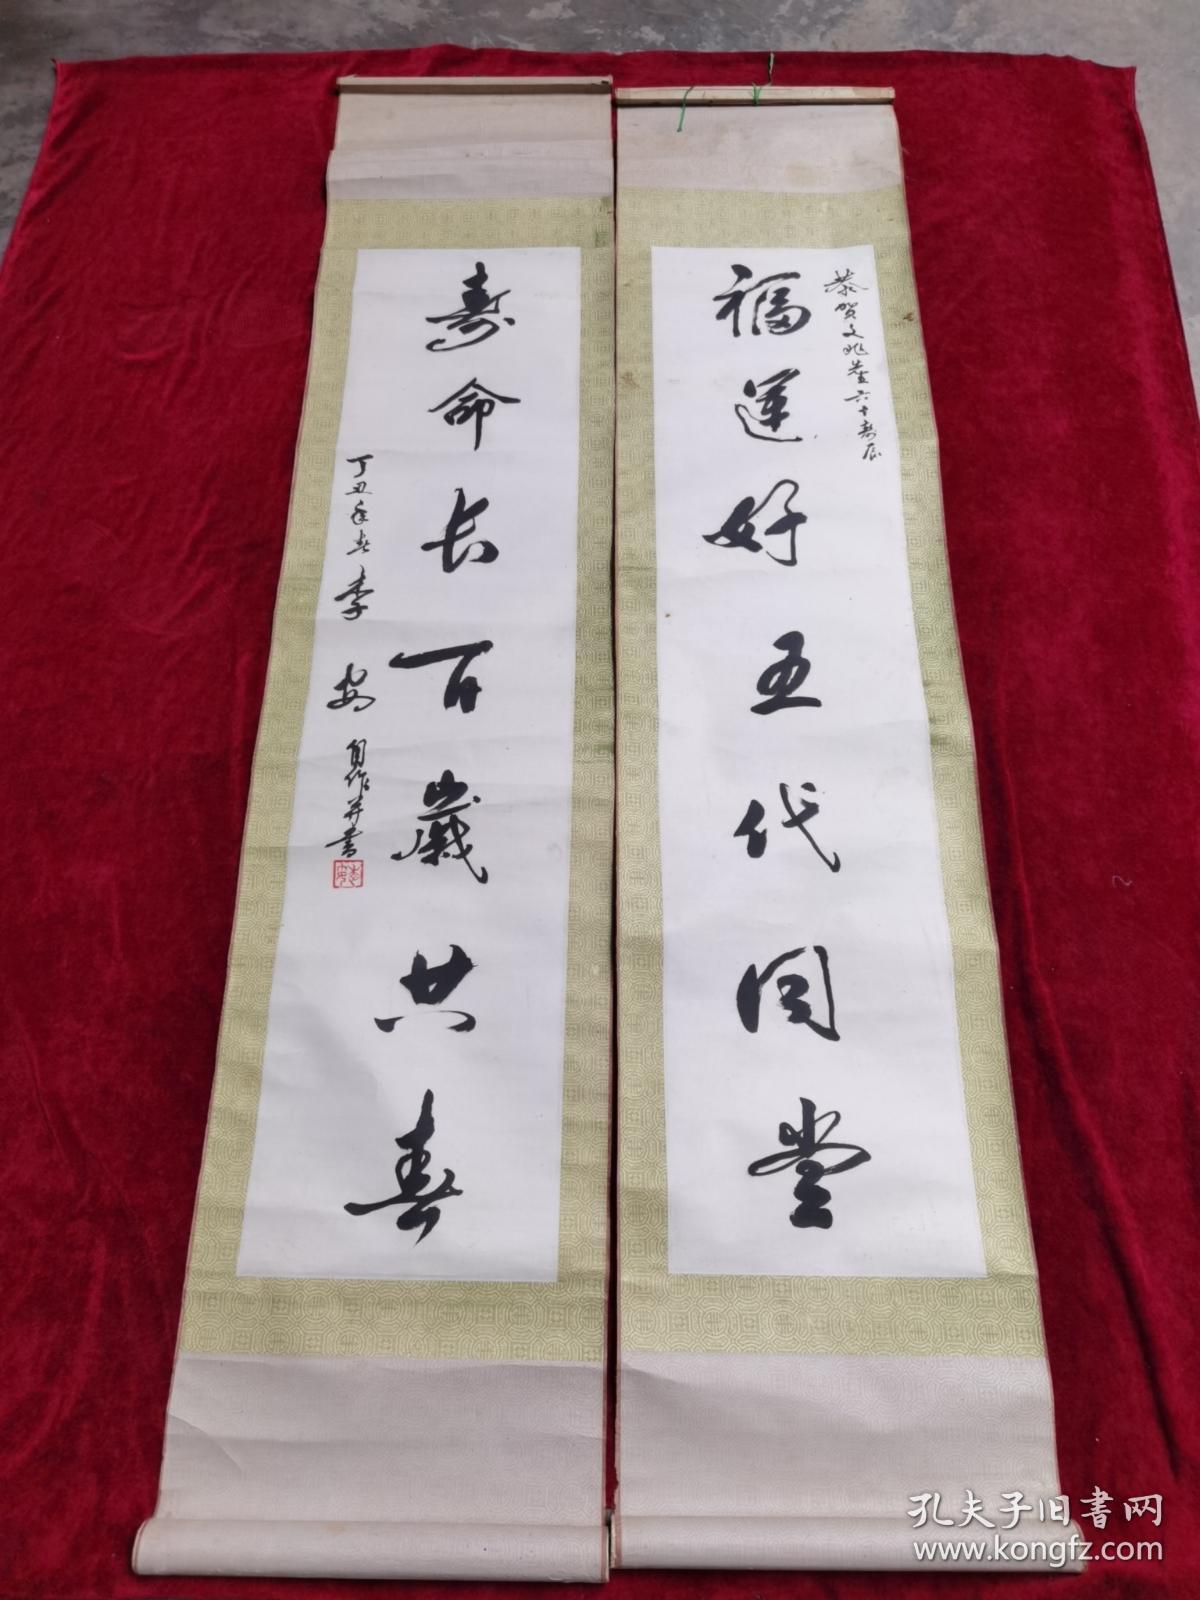 恭贺文兆董六十寿辰
福运好五代同堂
寿命长百岁共春
丁丑年春李安自作并书
孔夫子旧书网
www.kongfz.com